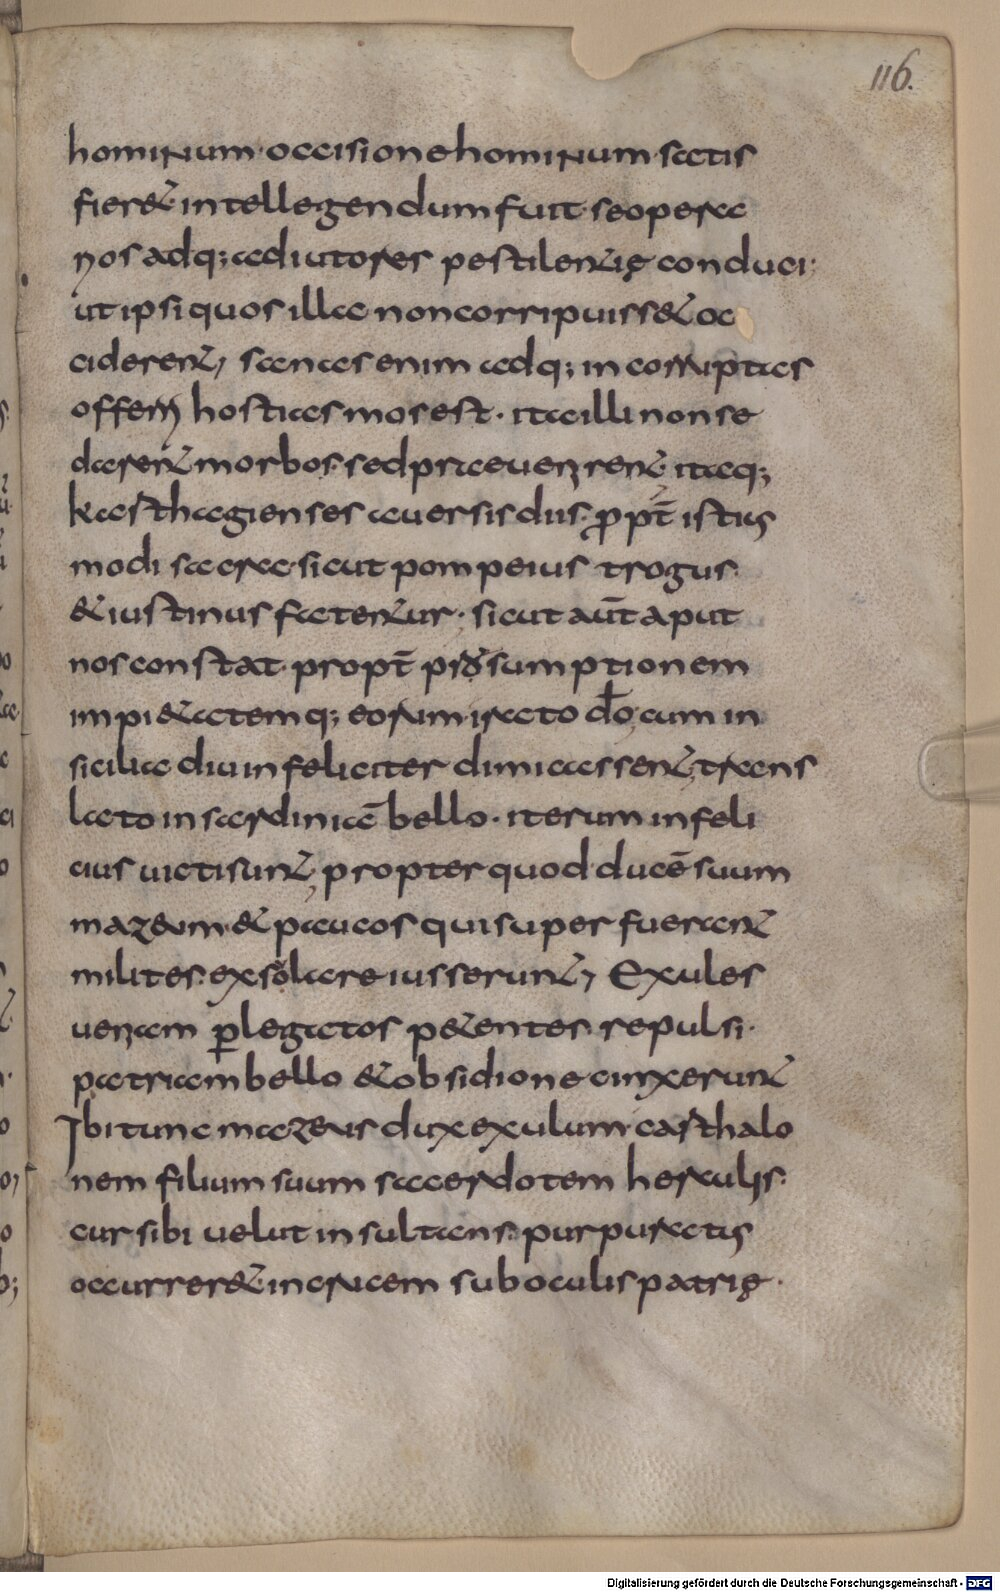 116.
hominum occisione hominum satis
fier&. intellegendum fuit. se opera
rios adq; adiutores pestilentię conduci.
ut ipsi quos illa non corripuiss& oc
ciderent, sanas enim adq; incorruptas
offerri hostias mos est. ita illi non se
darent morbos. sed praeuenirent. itaq;
karthagienses auersis diis. ꝓpt̄ istius
modi sacra. sicut pompeius trogus.
& iustinus fatentur. sicut aut̄ aput
nos constat. propt̄ pręsumptionem
impi&atemq; eorum. irato dō, cum in
sicilia diu infeliciter dimicassent, trans
lato in sardiniā bello. iterum infeli
cius uicti sunt, propter quod ducē suum
mazeum. & paucos qui super fuerant
milites. exsolare iusserunt, Exules
ueniam ꝑ legatos p&entes. repulsi.
patriam bello & obsidione cinxerunt
Ibi tunc mazeus dux exulum. carthalo
nem filium suum sacerdotem herculis.
cur sibi uelut insultans. purpuratus
occurrer&. in crucem sub oculis patrię.
Digitalisierung gefördert durch die Deutsche Forschungsgemeinschaft - DFG